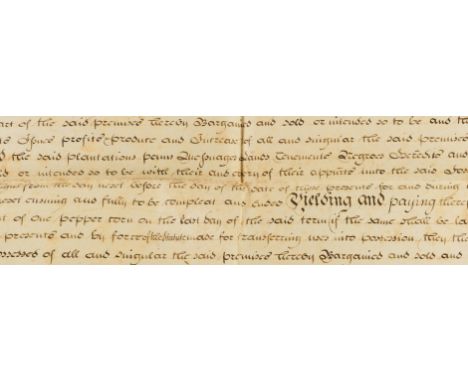 art of the said premises hereby Bargained and sold or intended so to be and the
Issues profits produce and Increase of all and singular the said premises
d the said plantations penns Messuages Lands Tenements Negroes Heredits and
d or intended so to be with their and every of their appurts unto the said
from the day next before the day of the date of these presents for and during
next ensuing and fully to be compleat and ended Yielding and paying there
nt of one pepper corn on the last day of the said term if the same shall be la
presents and by force of the Statute made for transferring uses into possession they the
ossessed of all and singular the said premises hereby Bargained and sold and